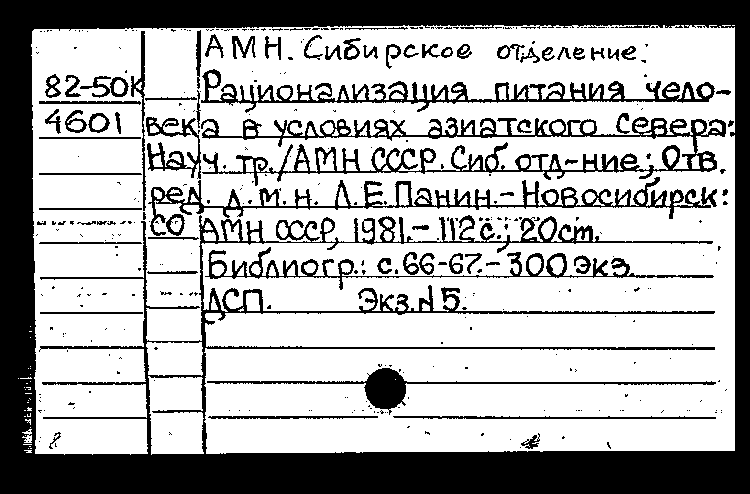 АМН. Сибирское отделение.
82-50К Рационализация питания чело-
4601 века в условиях азиатского Севера:
Науч. тр./АМН СССР. Сиб. отд-ние; Отв.
ред. д.м.н. Л.Е.Панин.-Новосибирск:
СО АМН СССР, 1981.- 112с.; 20cm.
Библиогр.: с.66-67.- 300 экз.
ДСП. Экз.№5.
8